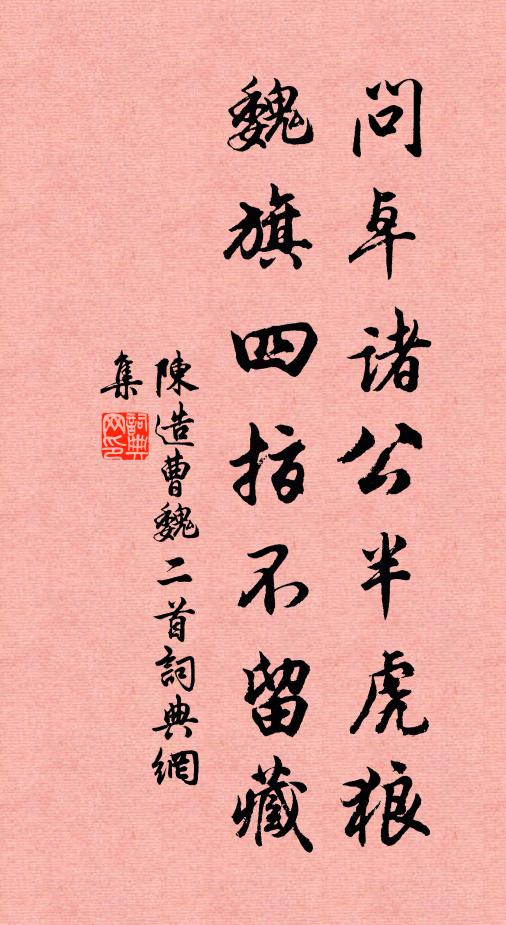 問卓諸公半虎狼
魏旗四指不留藏
陳造曹魏二首詞典網
集
詞典
网印